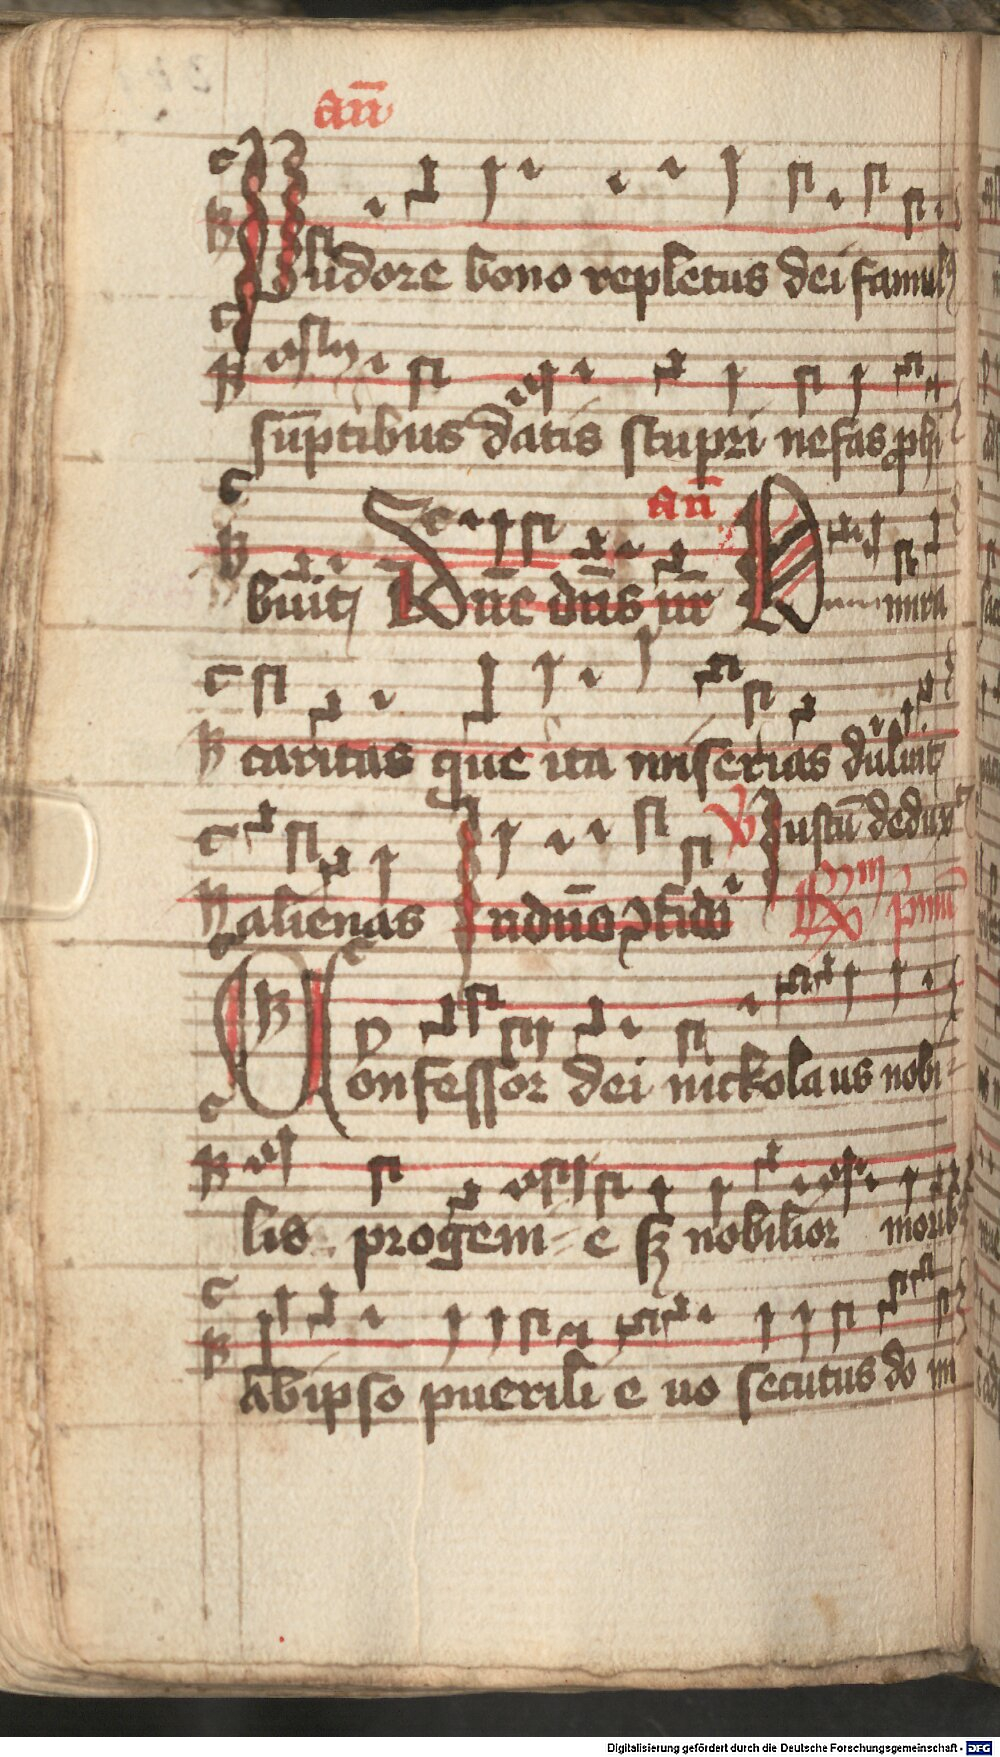 an̄
Pudore bono repletus dei famulꝰ
sūptibus datis stupri nefas ꝓhi
buit Dn̄e dn̄s nr̄ an̄ O mira
caritas que ita miserias diluit
alienas In dn̄o ꝯfido ℣ Justū deduxit
Confessor dei nickolaus nobi
lis progeni e sꝫ nobilior morib
ab ipso puerili e uo secutus do mi
Digitalisierung gefördert durch die Deutsche Forschungsgemeinschaft - DFG